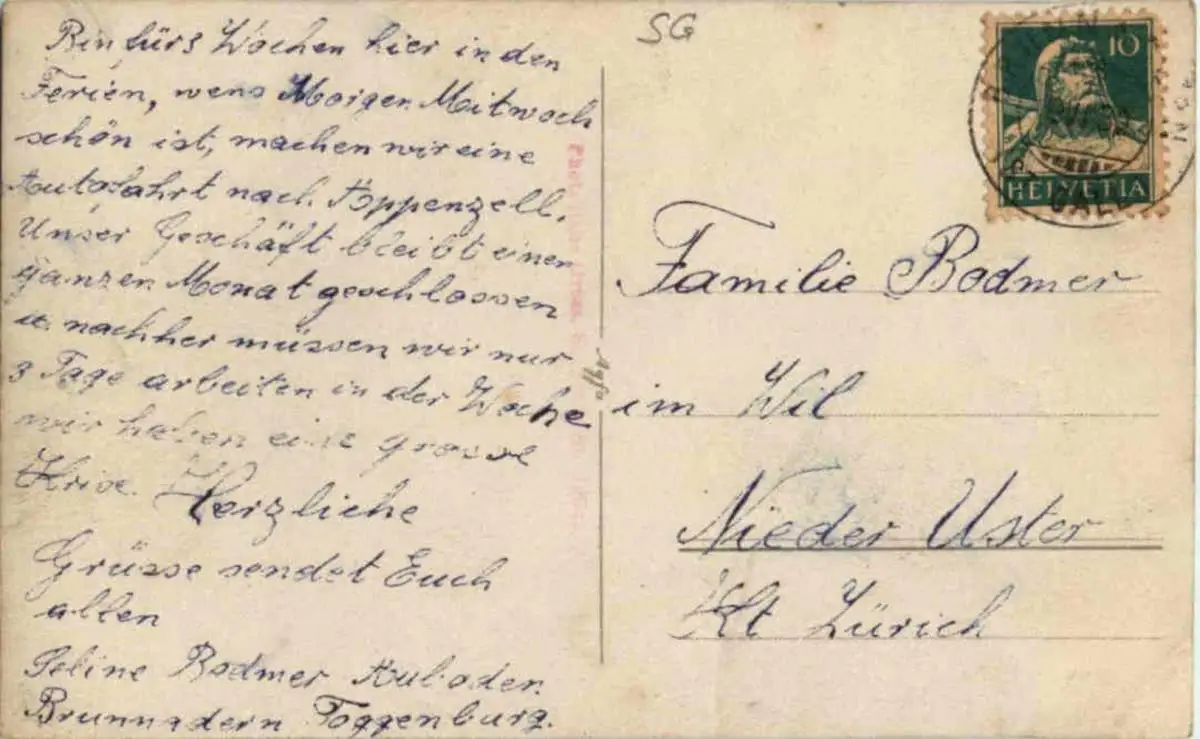 SG
Bin fürs Wochen hier in den
Ferien, wens Morgen Mitwoch
schön ist, machen wir eine
Autofahrt nach Appenzell.
Unser Geschäft bleibt einen
ganzen Monat geschlossen
u. nachher müssen wir nur
3 Tage arbeiten in der Woche
wir haben eine grosse
Krise. Herzliche
Grüsse sendet Euch
allen
Seline Bodmer Auboden
Brunnadern Toggenburg.
10
HELVETIA
GALL
Familie Bodmer
im Wil
Nieder Uster
Kt Zürich